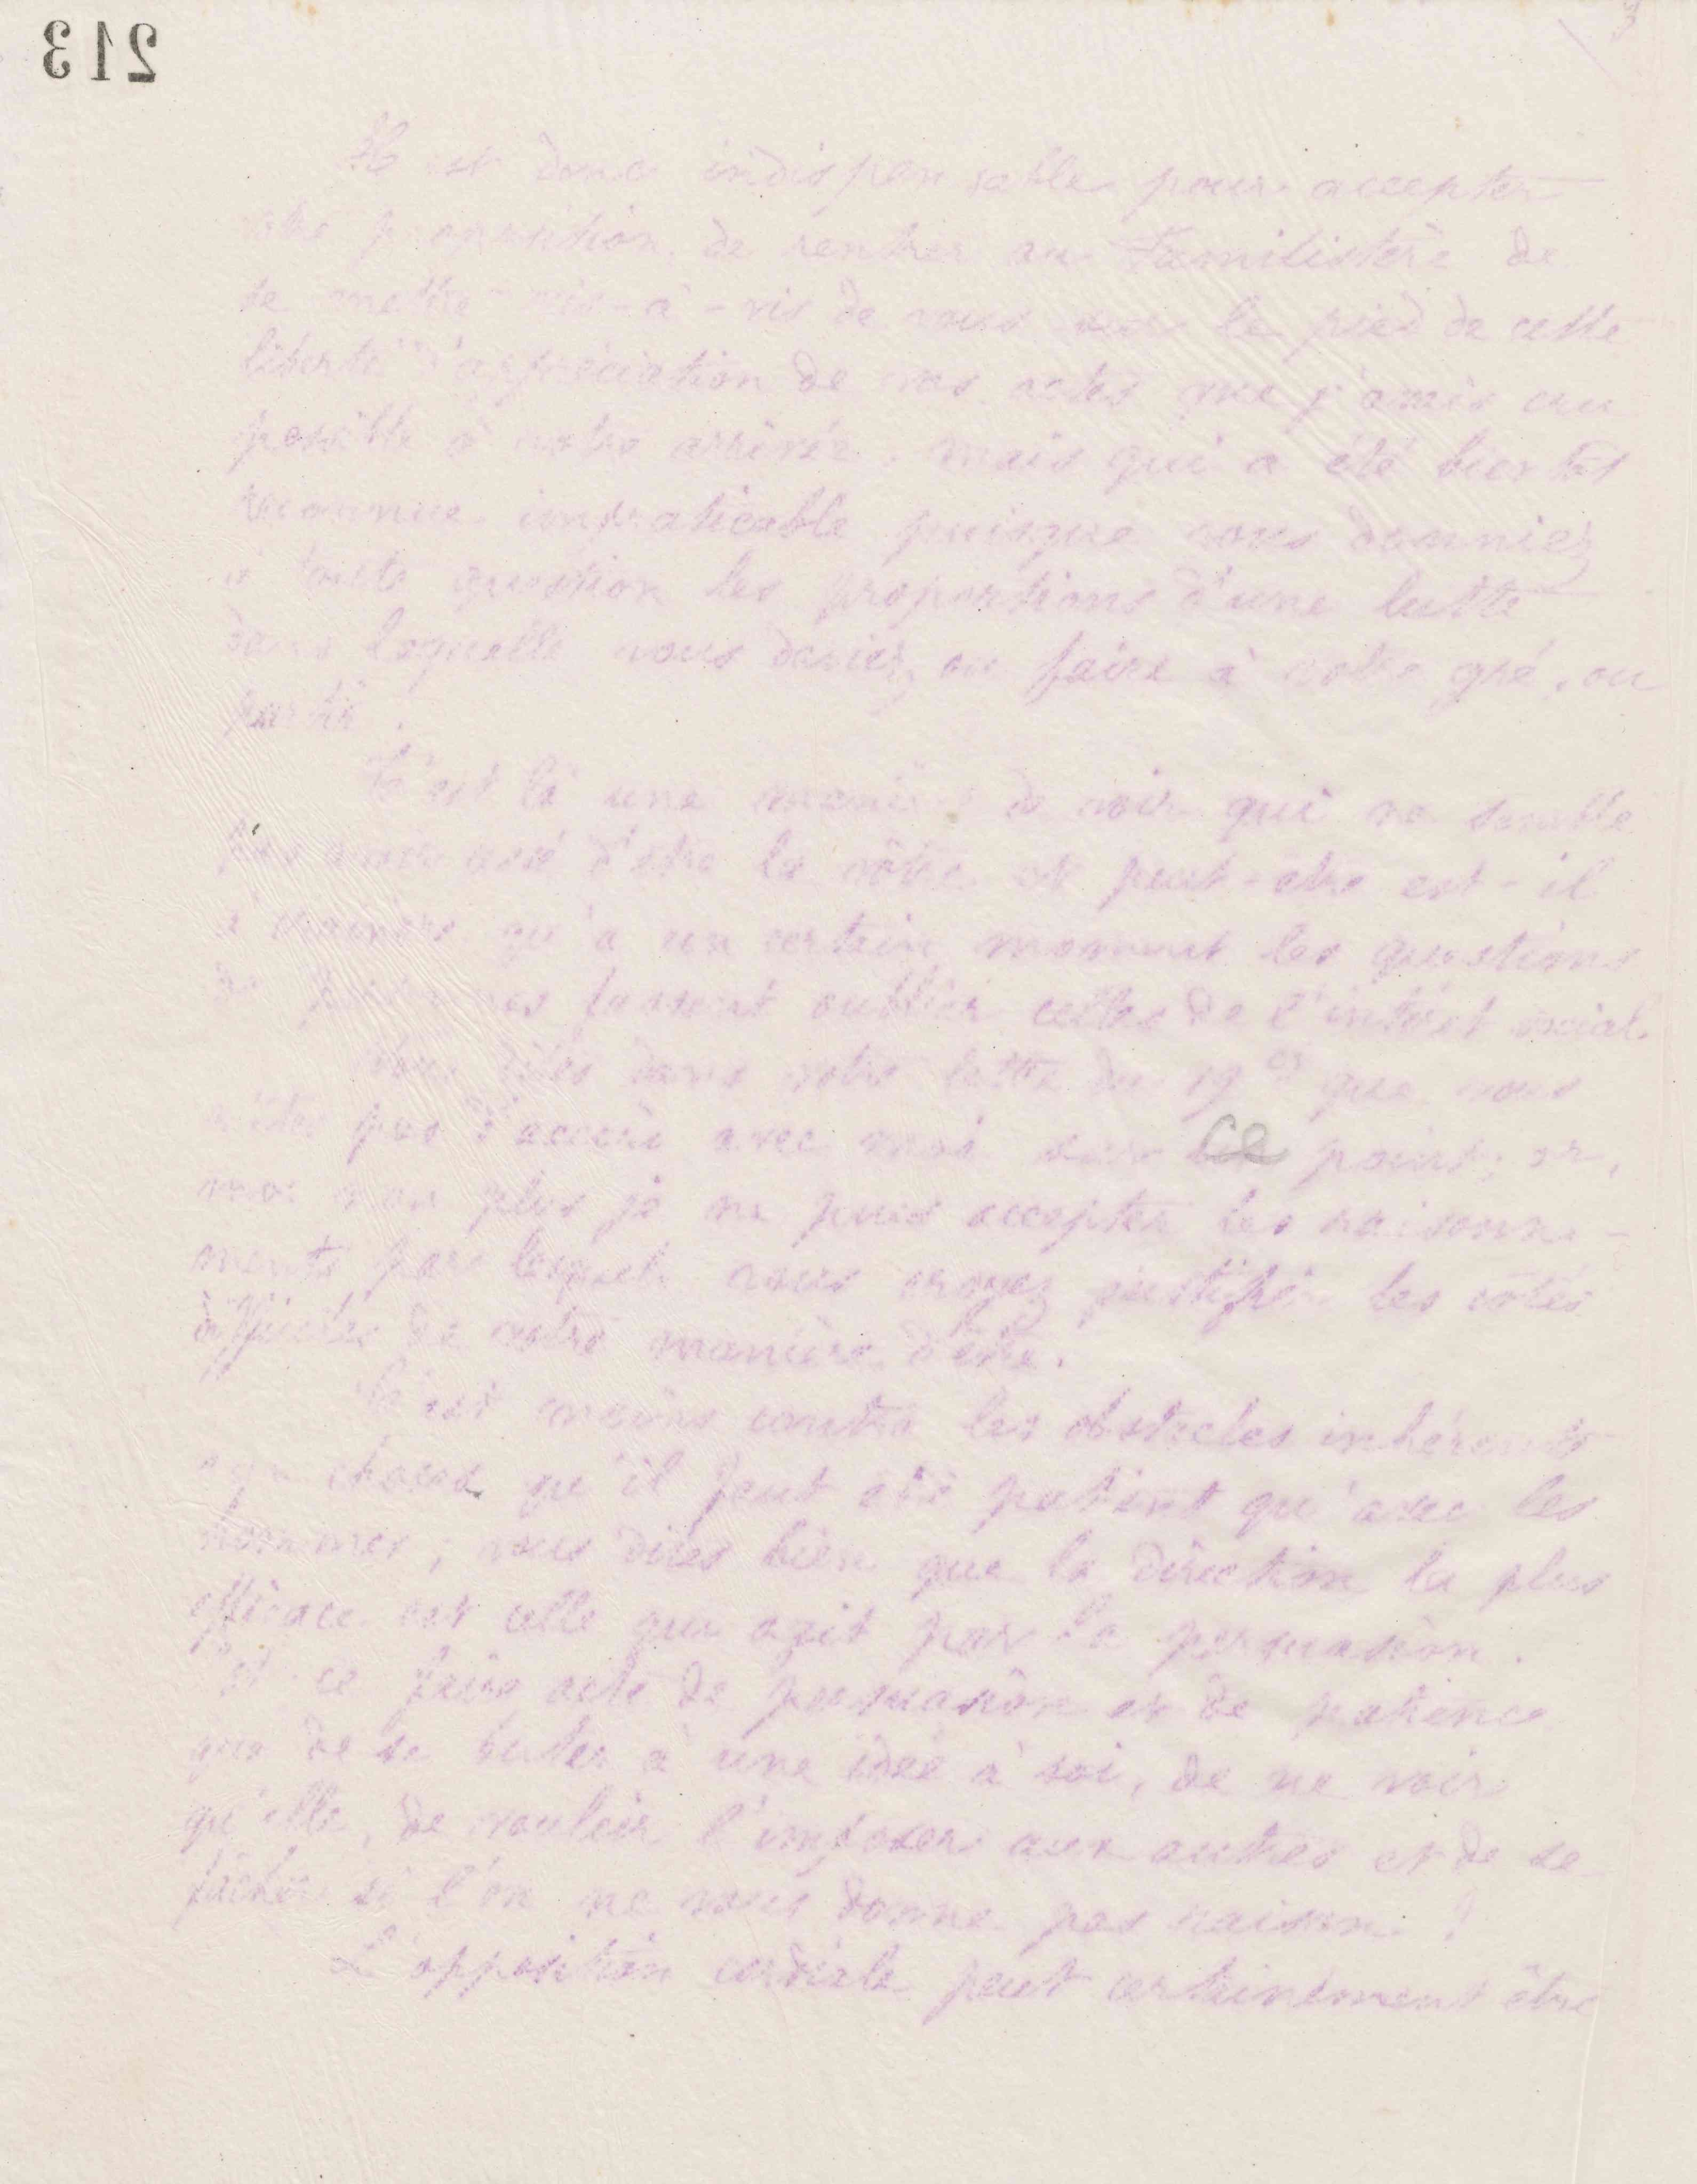 213
Il est donc indispensable pour accepter
votre proposition de rentrer au Familistère de
se mettre vis-à-vis de vous sur le pied de cette
liberté d'appréciation de vos actes que j'avais cru
possible à votre arrivée, mais qui a été bientôt
reconnue impraticable puisque vous donniez
à toute question les proportions d'une lutte
dans laquelle vous deviez, ou faire à votre gré, ou
partir.
C'est là une manière de voir qui ne semble
pas avoir cessé d'être la vôtre et peut-être est-il
à craindre qu'à un certain moment les questions
de personnes fassent oublier celles de l'intérêt social.
Vous dites dans votre lettre du 19 que vous
n'êtes pas d'accord avec moi sur ce point; or,
moi non plus je ne puis accepter les raisonne-
ments par lesquels vous croyez justifier les côtés
difficiles de votre manière d'être.
C'est moins contre les obstacles inhérents
aux choses qu'il faut être patient qu'avec les
hommes; vous dites bien que la direction la plus
efficace est celle qui agit par la persuasion.
Est-ce faire acte de persuasion et de patience
que de se buter à une idée à soi, de ne voir
qu'elle, de vouloir l'imposer aux autres et de se
fâcher si l'on ne vous donne pas raison ?
L'opposition cordiale peut certainement être